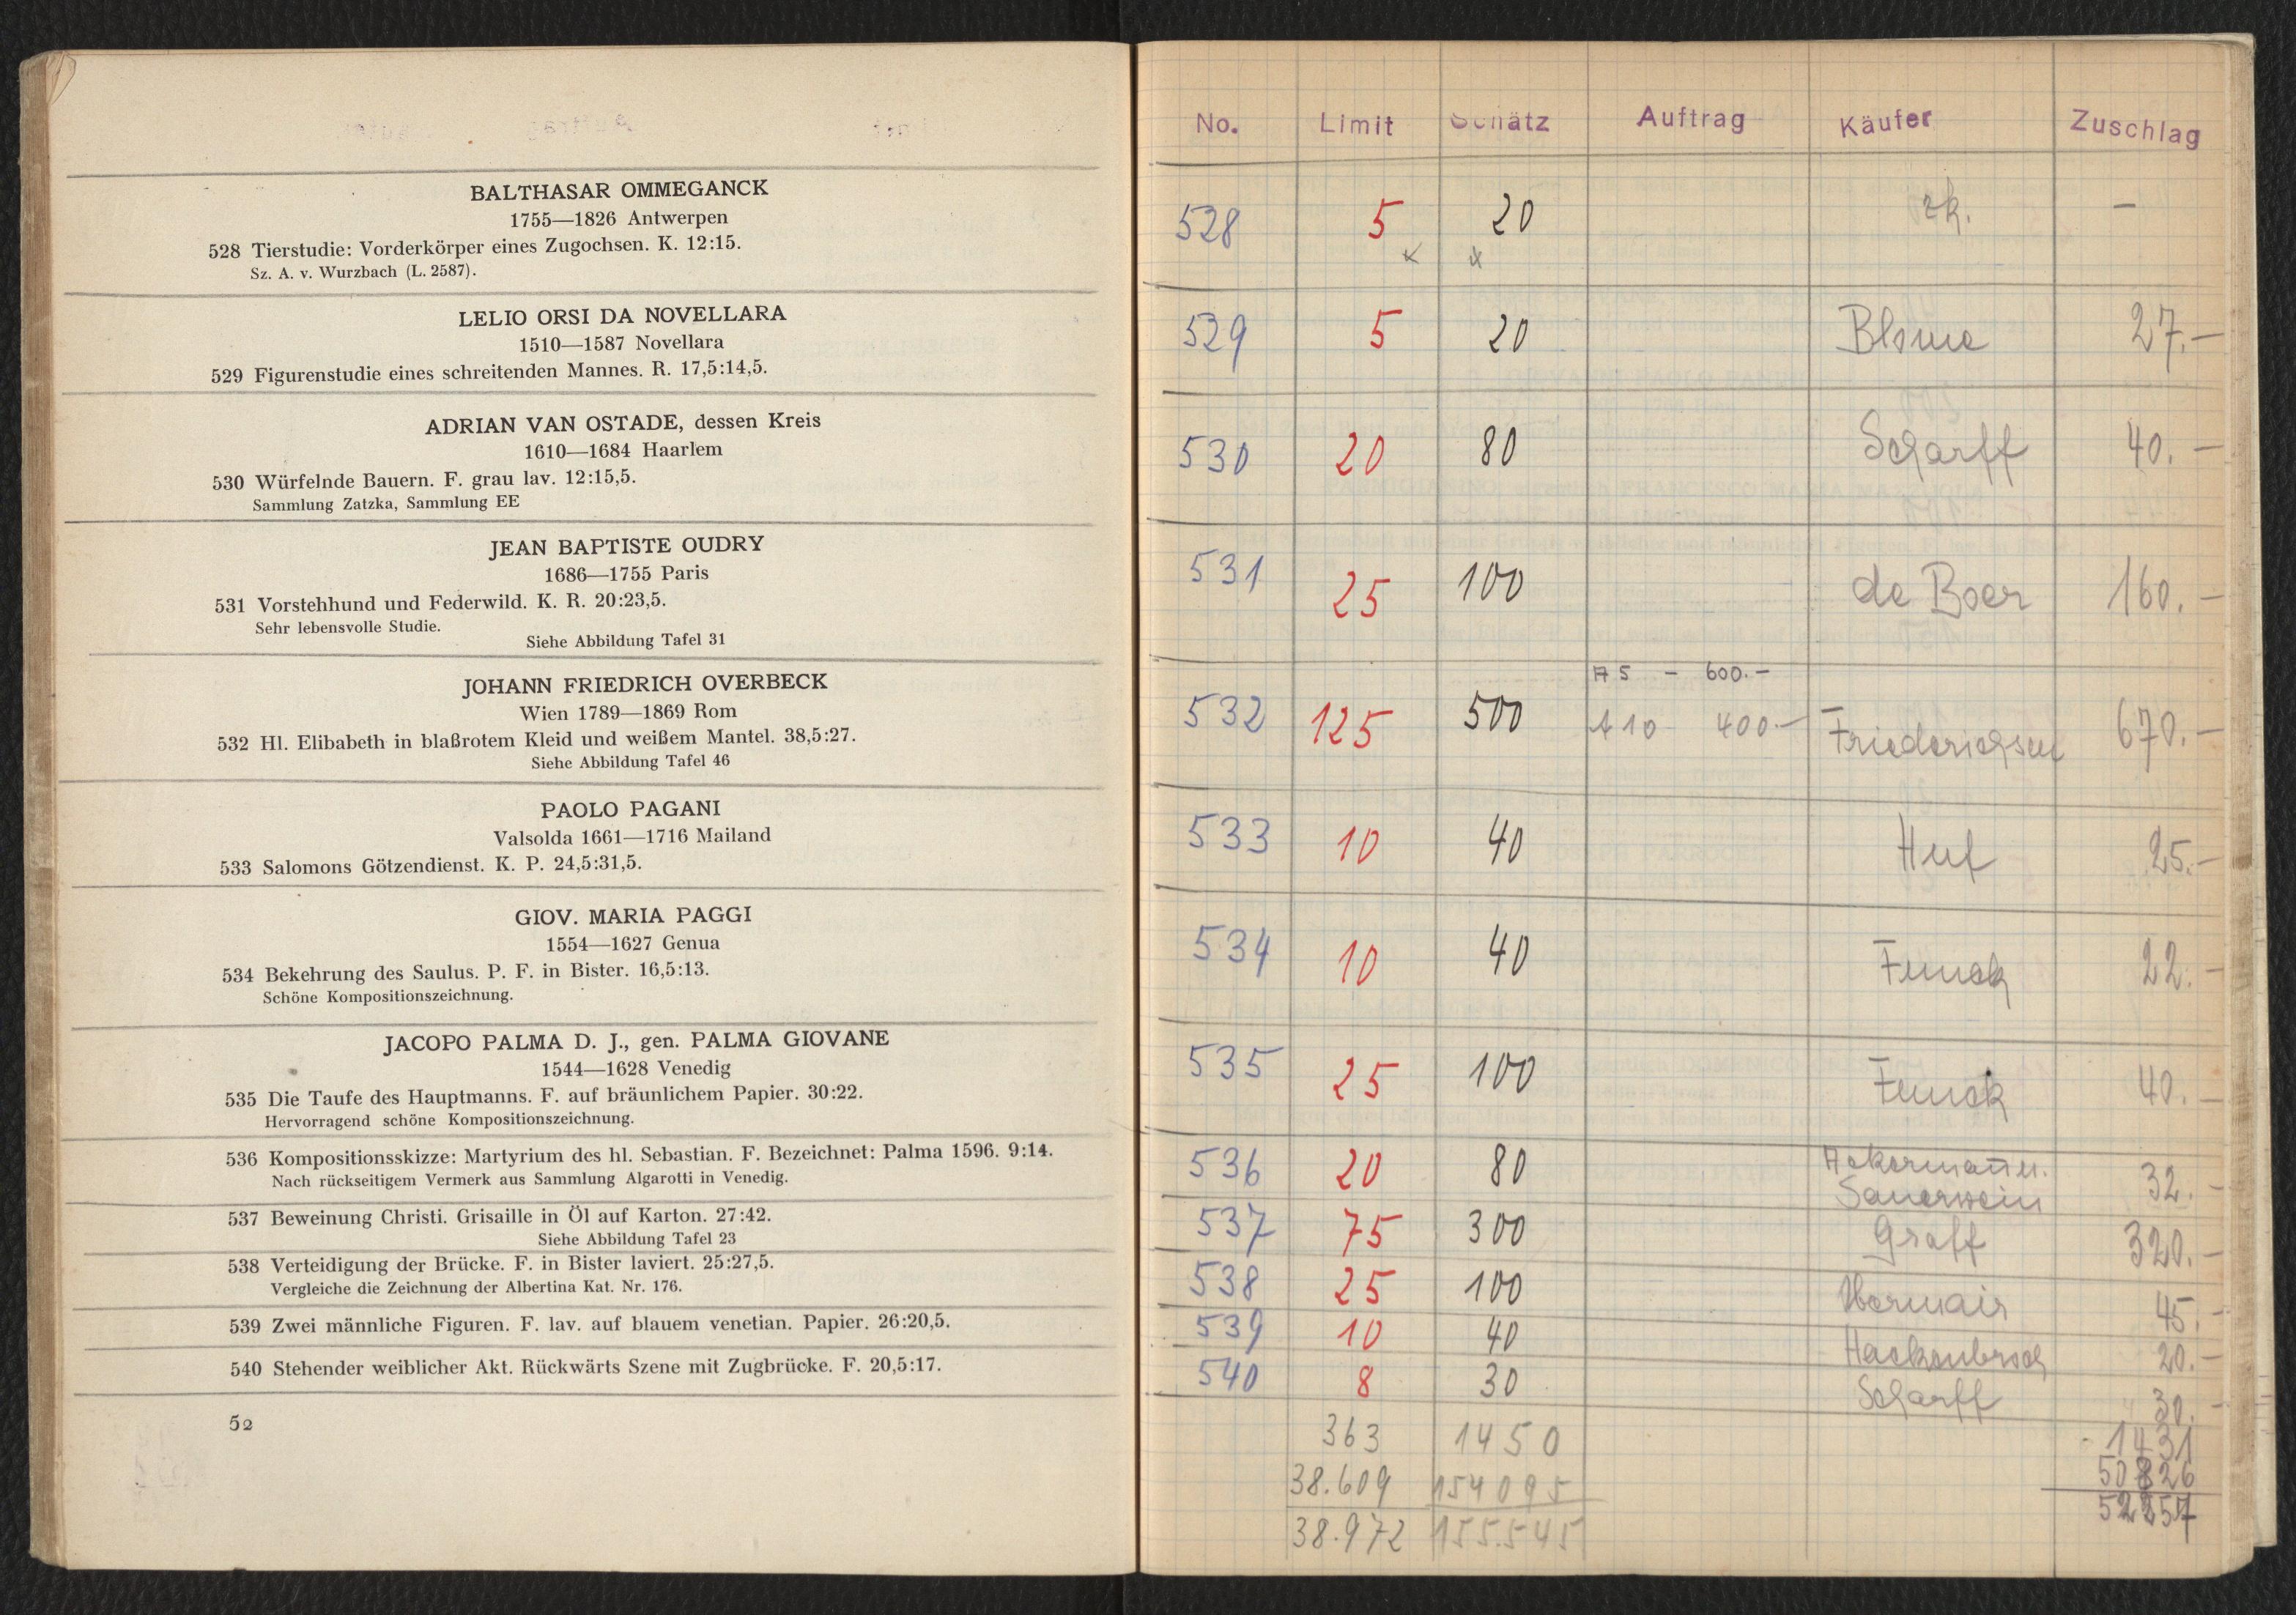 BALTHASAR OMMEGANCK
1755—1826 Antwerpen
528 Tierstudie: Vorderkörper eines Zugochsen. K. 12:15.
Sz. A. v. Wurzbach (L. 2587).
LELIO ORSI DA NOVELLARA
1510—1587 Novellara
529 Figurenstudie eines schreitenden Mannes. R. 17,5:14,5.
ADRIAN VAN OSTADE, dessen Kreis
1610—1684 Haarlem
530 Würfelnde Bauern. F. grau lav. 12:15,5.
Sammlung Zatzka, Sammlung EE
JEAN BAPTISTE OUDRY
1686—1755 Paris
531 Vorstehhund und Federwild. K. R. 20:23,5.
Sehr lebensvolle Studie.
Siehe Abbildung Tafel 31
JOHANN FRIEDRICH OVERBECK
Wien 1789—1869 Rom
532 Hl. Elibabeth in blaßrotem Kleid und weißem Mantel. 38,5:27.
Siehe Abbildung Tafel 46
PAOLO PAGANI
Valsolda 1661—1716 Mailand
533 Salomons Götzendienst. K. P. 24,5:31,5.
GIOV. MARIA PAGGI
1554—1627 Genua
534 Bekehrung des Saulus. P. F. in Bister. 16,5:13.
Schöne Kompositionszeichnung.
JACOPO PALMA D. J., gen. PALMA GIOVANE
1544—1628 Venedig
535 Die Taufe des Hauptmanns. F. auf bräunlichem Papier. 30:22.
Hervorragend schöne Kompositionszeichnung.
536 Kompositionsskizze: Martyrium des hl. Sebastian. F. Bezeichnet: Palma 1596. 9:14.
Nach rückseitigem Vermerk aus Sammlung Algarotti in Venedig.
537 Beweinung Christi. Grisaille in Öl auf Karton. 27:42.
Siehe Abbildung Tafel 23
538 Verteidigung der Brücke. F. in Bister laviert. 25:27,5.
Vergleiche die Zeichnung der Albertina Kat. Nr. 176.
539 Zwei männliche Figuren. F. lav. auf blauem venetian. Papier. 26:20,5.
540 Stehender weiblicher Akt. Rückwärts Szene mit Zugbrücke. F. 20,5:17.
52
No. Limit Schätz Auftrag Käufer Zuschlag
528 5 20 zk. —
529 5 20 Blome 27.—
530 20 80 Scharff 40.—
531 25 100 de Boer 160.—
A 5 - 600.—
532 125 500 A 10 400.— Friederichsen 670.—
533 10 40 Huf 25.—
534 10 40 Funck 22.—
535 25 100 Funck 40.—
536 20 80 Ackermann. 32.—
Sauerwein
537 75 300 Graff 320.—
538 25 100 45.—
539 10 40 Hackenbroch 20.—
540 8 30 Scharff 30.—
363 1450 1431
38.609 154095 50826
38.972 155.545 52257